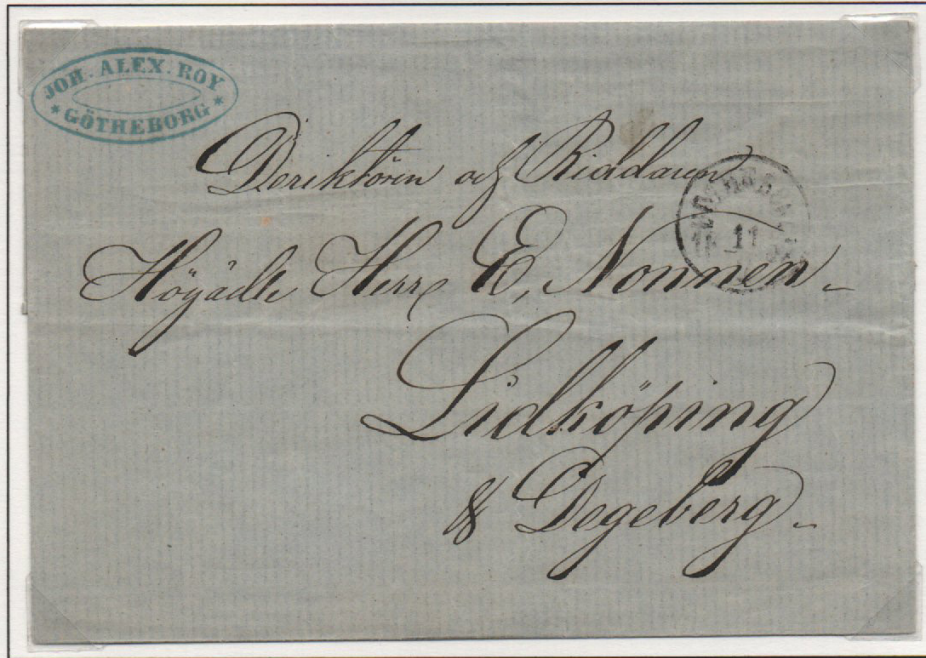 JOH. ALEX. ROY
* GÖTHEBORG *
Deriktören och Riddaren
11
Högädle Herr E, Nonnen
Lidköping
& Degeberg